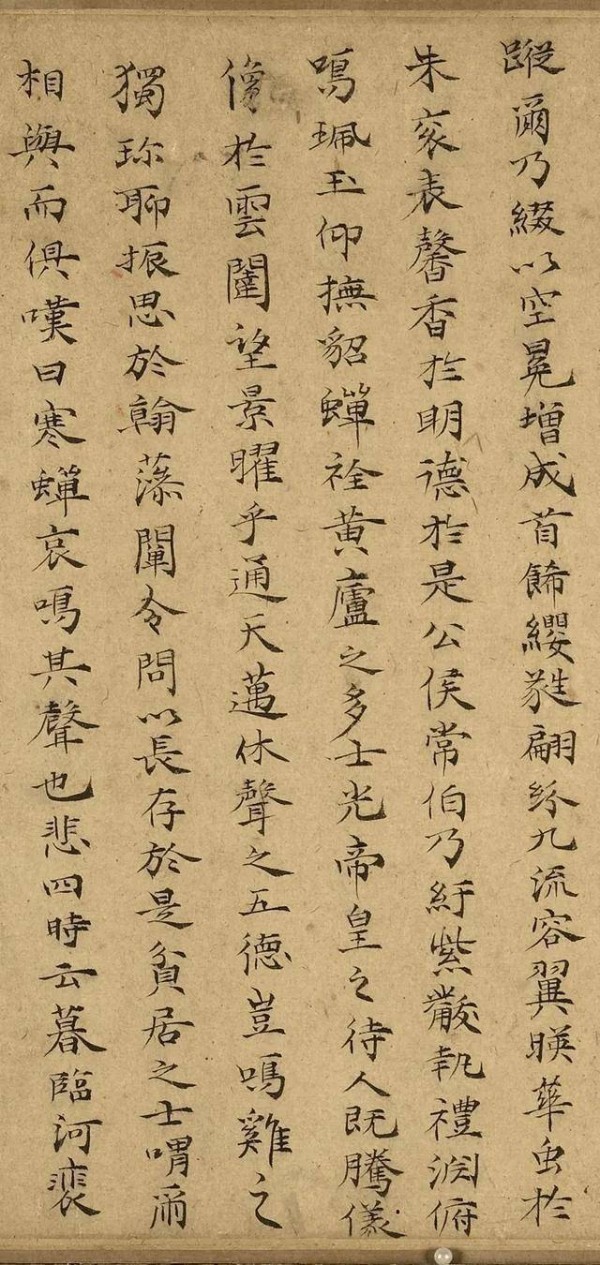 蹤爾乃綴以空冕增成首飾纓蕤翩紛九流容翼暎華虫於
朱衮表馨香於明德於是公侯常伯乃紆紫黻執禮淵俯
鳴珮玉仰撫貂蟬黃廬之多士光帝皇之待人既騰儀
像於雲闈望景曜乎通天邁休聲之五德豈鳴雞之
獨珎聊振思於翰藻闡令問以長存於是貧居之士喟爾
相與而俱嘆曰寒蟬哀鳴其聲也悲四時云暮臨河裵